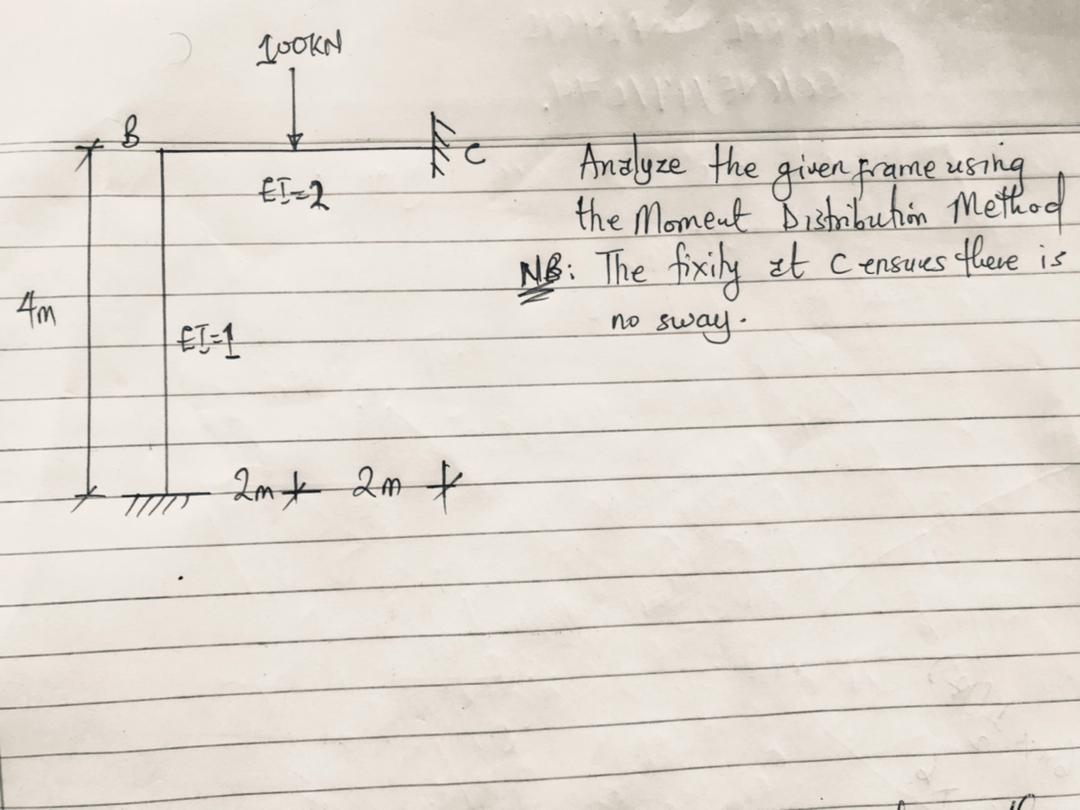 100KN
B
C
EI=2
Analyze the given frame using
the Moment Distribution Method
NB: The fixity at C ensures there is
no sway.
4m
EI=1
2m 2m